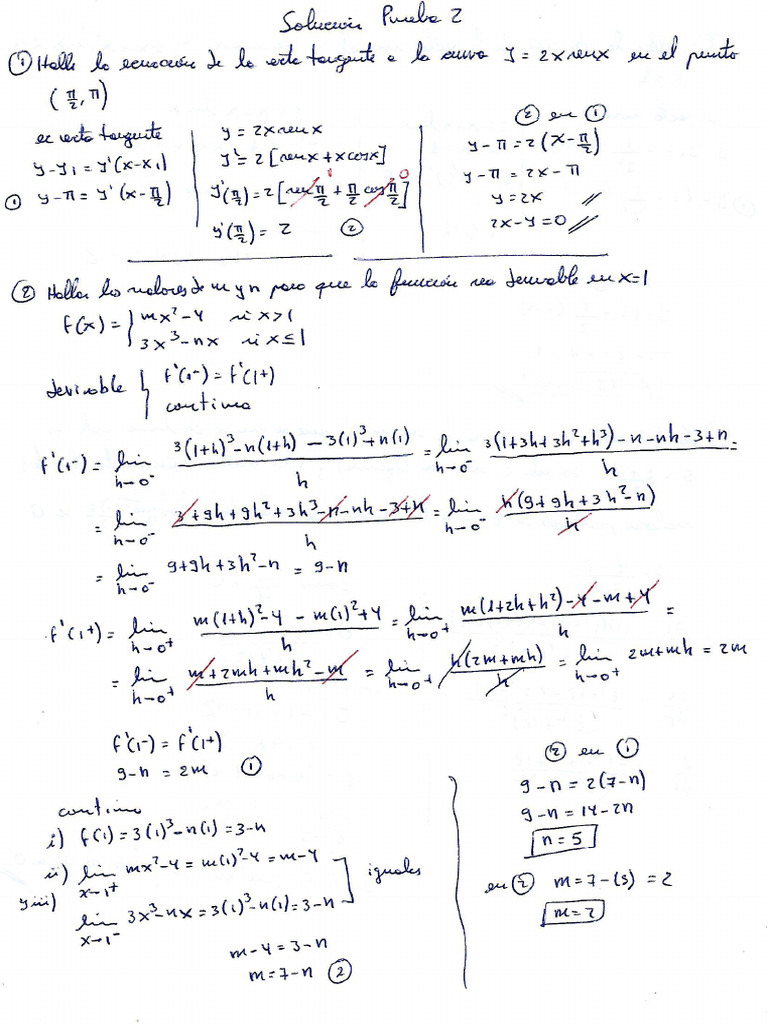 Solución Prueba 2
① Halle la ecuación de la recta tangente a la curva y = 2x senx en el punto
(π/2, π)
ec recta tangente
y-y₁ = y'(x-x₁)
① y-π = y'(x-π/2)
y = 2x senx
y' = 2[senx + x cosx]
y'(π/2) = 2[sen π/2 + π/2 cos π/2] 1 0
y'(π/2) = 2 ②
② en ①
y-π = 2(x-π/2)
y-π = 2x-π
y = 2x //
2x-y = 0 //
② Hallar los valores de m y n para que la función sea derivable en x=1
f(x) = { mx²-4 si x>1
3x³-nx si x≤1
derivable { f'(1⁻) = f'(1⁺)
continua
f'(1⁻) = lim h→0⁻ (3(1+h)³-n(1+h) - 3(1)³+n(1))/h = lim h→0⁻ (3(1+3h+3h²+h³)-n-nh-3+n)/h =
= lim h→0⁻ (3+9h+9h²+3h³-n-nh-3+n)/h = lim h→0⁻ h(9+9h+3h²-n)/h
= lim h→0⁻ 9+9h+3h²-n = 9-n
f'(1⁺) = lim h→0⁺ (m(1+h)²-4 - m(1)²+4)/h = lim h→0⁺ (m(1+2h+h²)-4-m+4)/h =
= lim h→0⁺ (m+2mh+mh²-m)/h = lim h→0⁺ h(2m+mh)/h = lim h→0⁺ 2m+mh = 2m
f'(1⁻) = f'(1⁺)
9-n = 2m ①
continua
i) f(1) = 3(1)³-n(1) = 3-n
ii) lim x→1⁺ mx²-4 = m(1)²-4 = m-4
y iii) lim x→1⁻ 3x³-nx = 3(1)³-n(1) = 3-n
iguales
m-4 = 3-n
m = 7-n ②
② en ①
9-n = 2(7-n)
9-n = 14-2n
n = 5
en ② m = 7-(5) = 2
m = 2